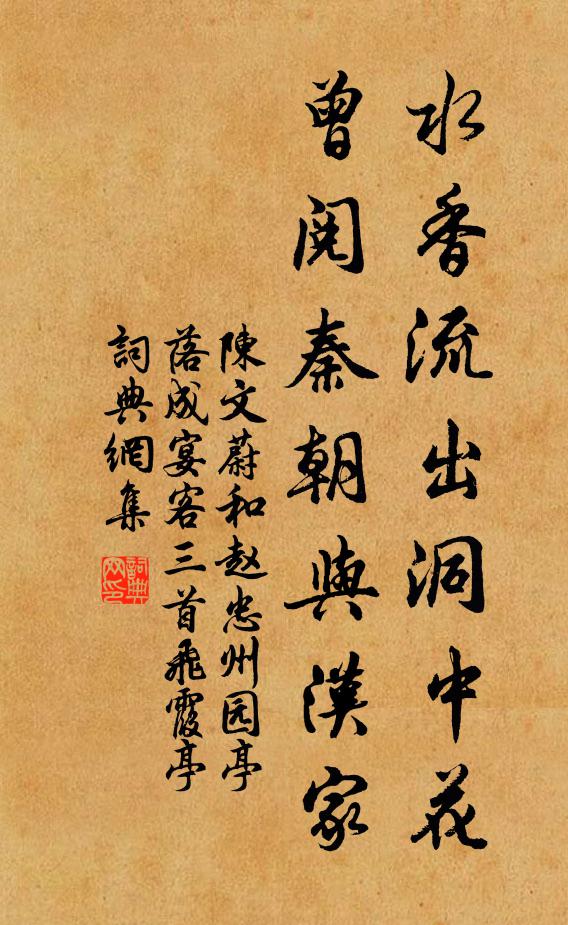 水香流出洞中花
曾阅秦朝與漢家
陳文蔚和赵忠州园亭
落成宴客三首飛霞亭
詞典網集
詞典
网印